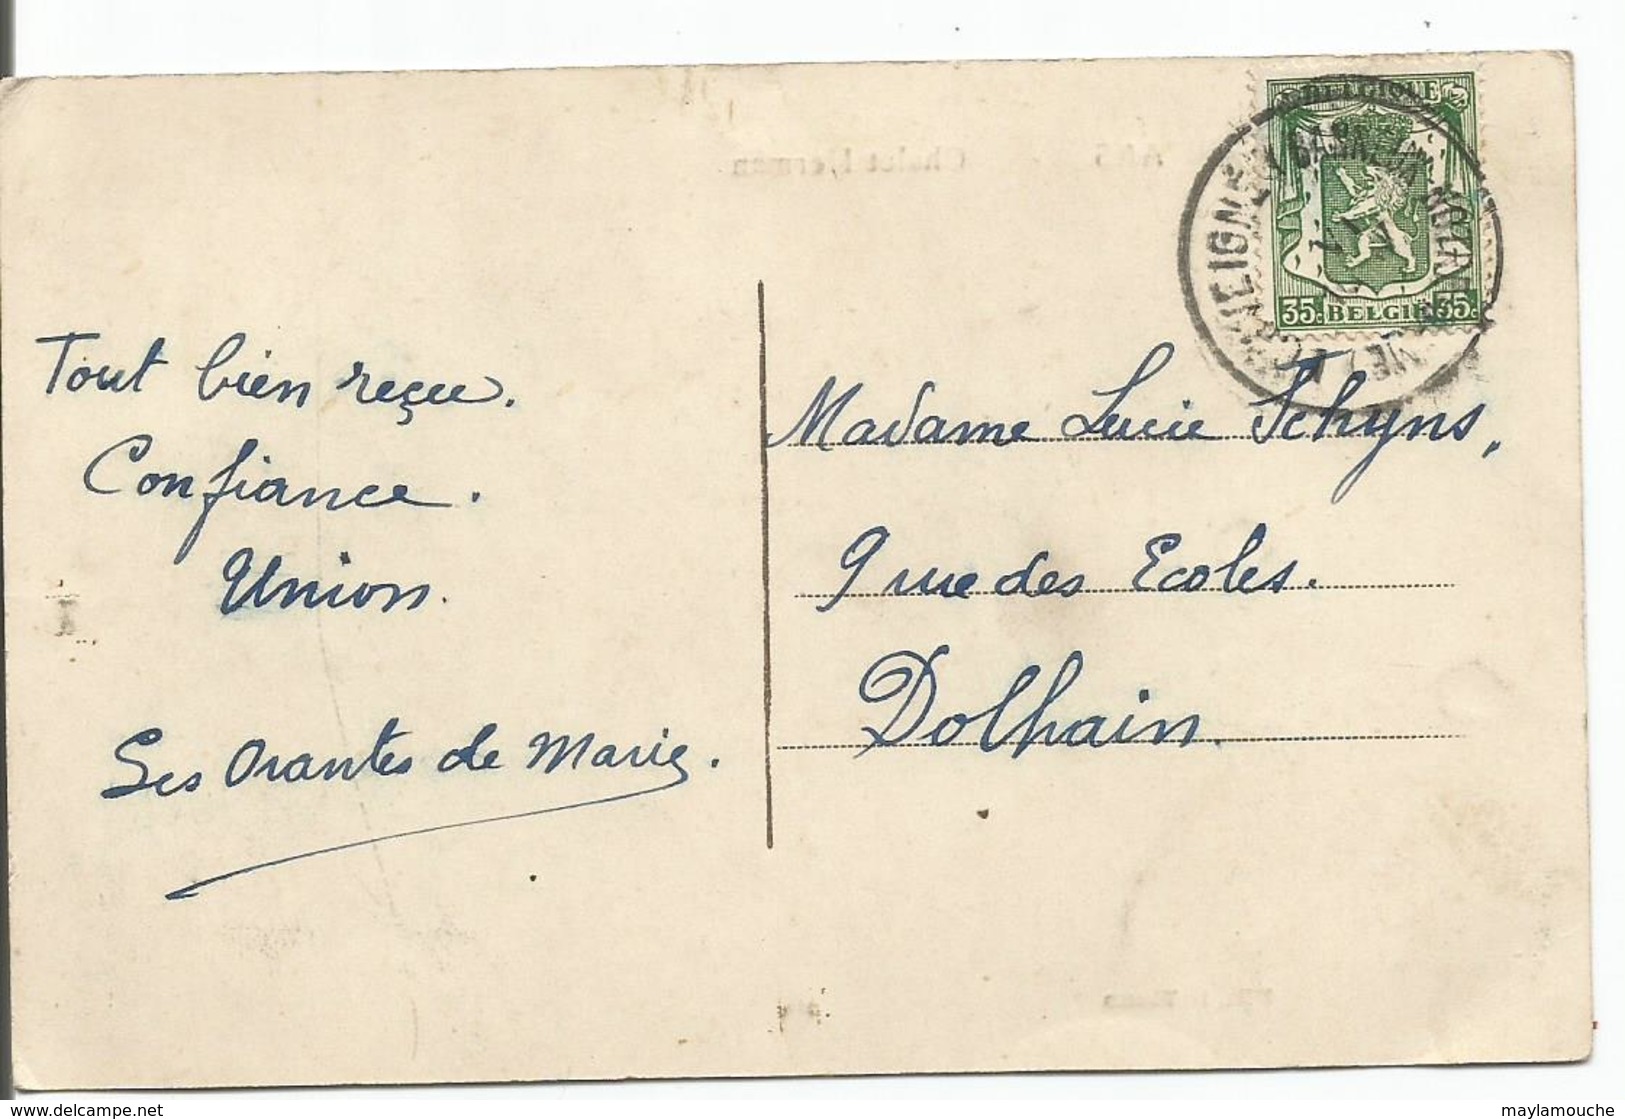 BELGIQUE
35c BELGIE 35c
Tout bien reçue.
Confiance.
Union.
Ses Orantes de Marie.
Madame Lucie Schyns,
9 rue des Ecoles.
Dolhain.
delcampe.net
maylamouche